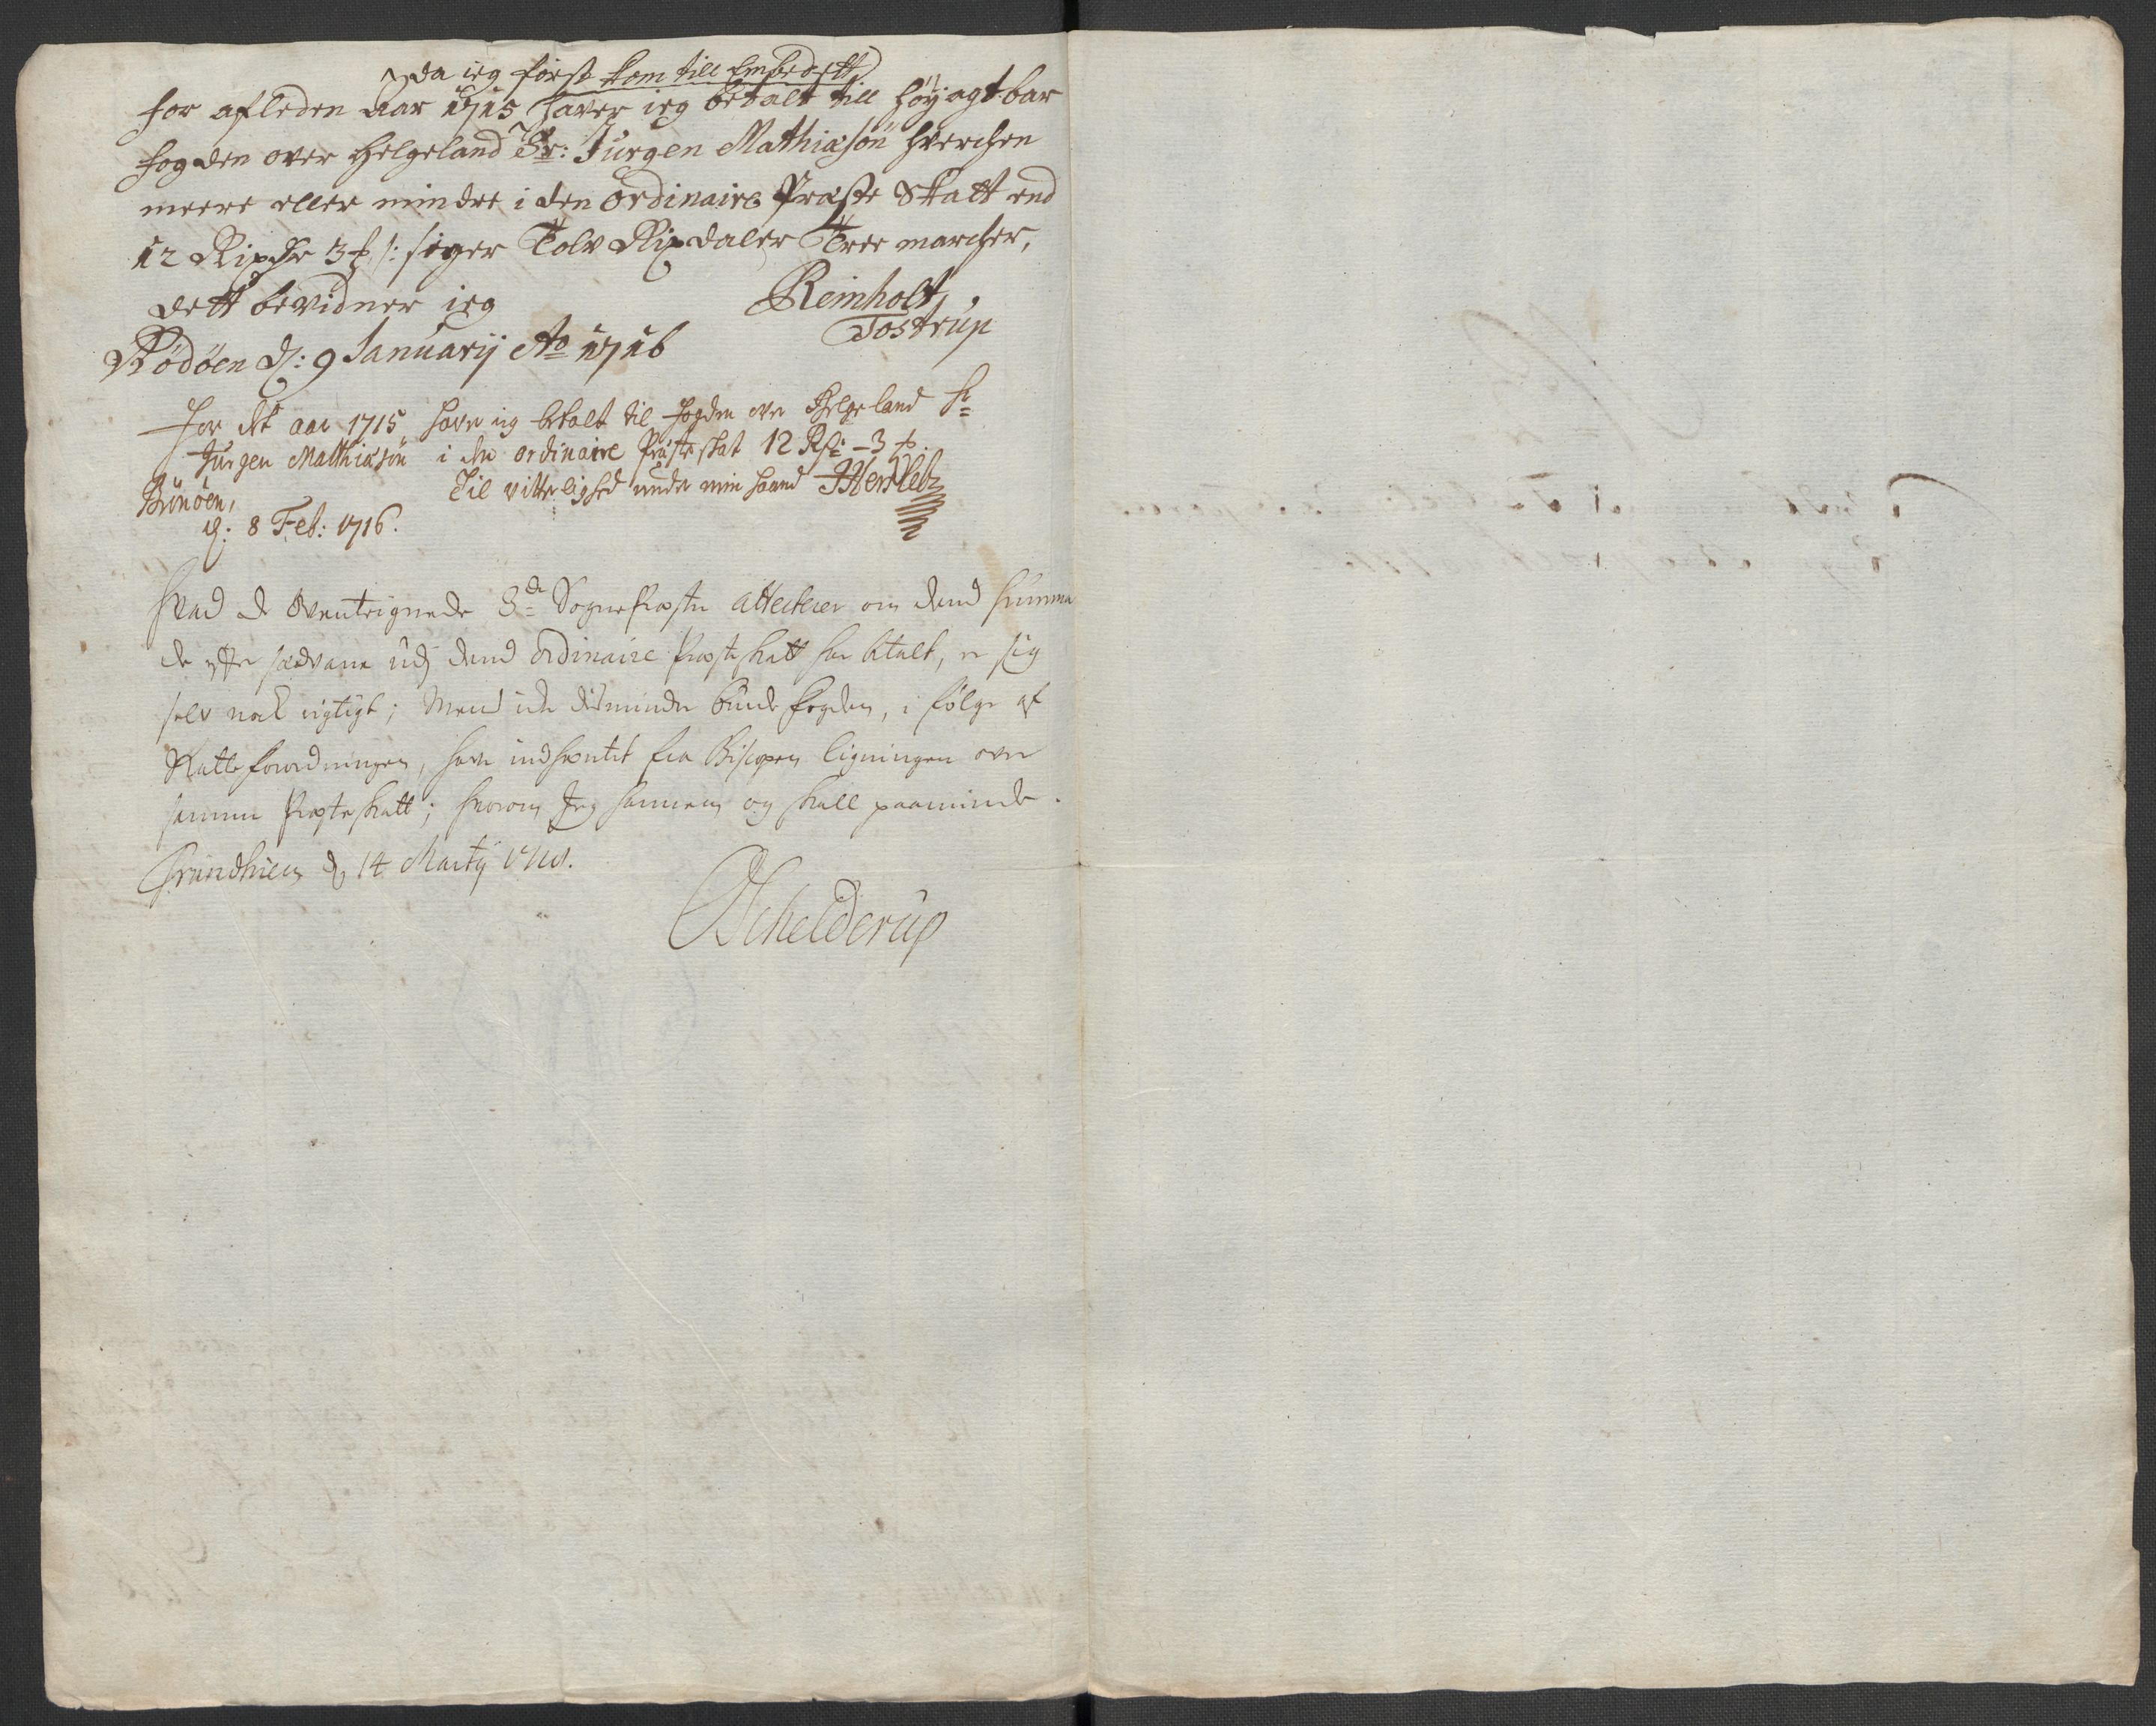 da ieg først kom till Embedett
for afleden Aar 1715 haver ieg betalt till høyagtbar
fogden over Helgeland Sr: Jurgen Mathiasøn hverchen
meere eller mindre i den ordinaire Præste Skatt end
12 Rixdr 3 ℔ /: siger Tolv Rixdaler Tree marcher,
dett bevidner ieg
Reinholt
Tostrup
Rödöen d: 9 Januarij Ao 1716
For dit aar 1715 haver ieg betalt til fogden over Helgeland Sr
Jurgen Mathiasøn i den ordinaire Præsteskat 12 Rdr - 3 ℔.
Til vitterlighed under min haand JHersleb
Brönöen,
d: 8 Feb: 1716.
Hvad de Oventeignede 3de Sognepræster attesterer om dend Summa
de efter sædvane udj dend ordinaire Præsteskatt har betalt, er sig
selv nock rigtigt; Mend icke disminder burde fogden, i følge af
Skatteforordningen, have indhentet fra Bispen ligningen over
samme Præsteskatt; hvorom Jeg hannem og skall paaminde.
Trundhiem d 14 Martij 1716.
Schelderup